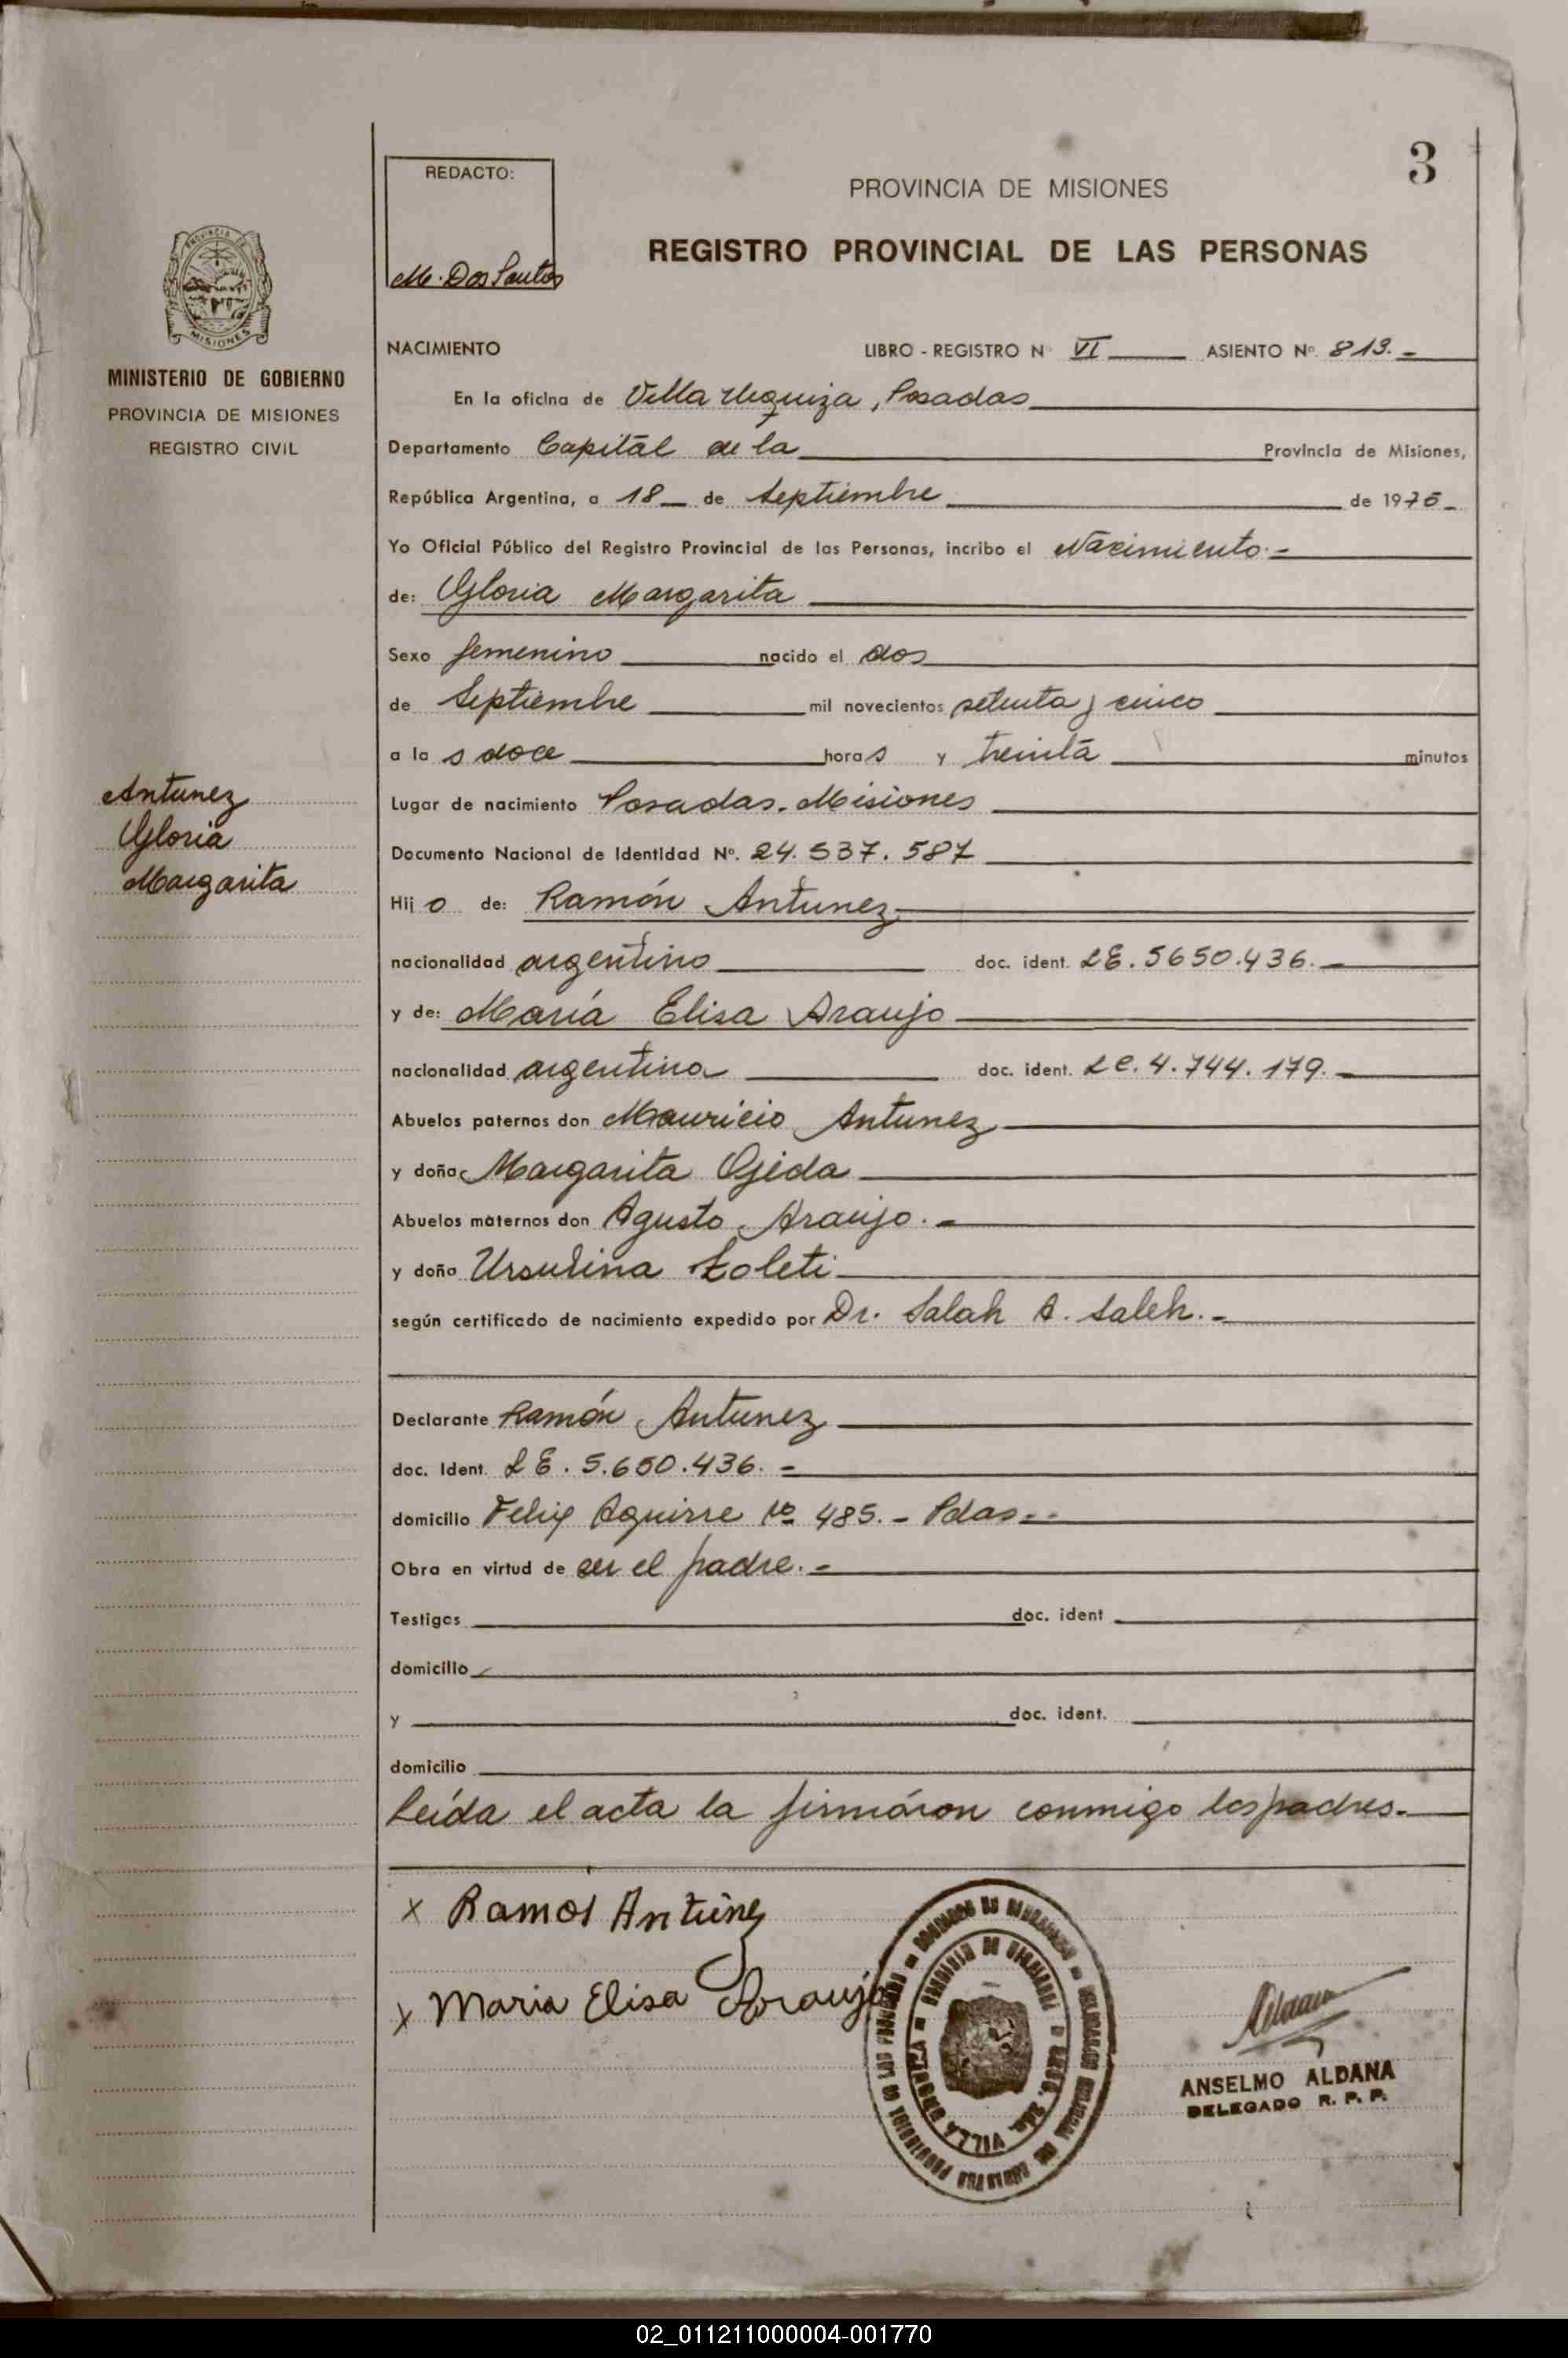 3
REDACTO:
M. Dos Santos
PROVINCIA DE MISIONES
REGISTRO PROVINCIAL DE LAS PERSONAS
PROVINCIA DE
MISIONES
MINISTERIO DE GOBIERNO
PROVINCIA DE MISIONES
REGISTRO CIVIL
Antunez
Gloria
Margarita
NACIMIENTO LIBRO - REGISTRO N° VI ASIENTO N° 813.-
En la oficina de Villa Urquiza, Posadas
Departamento Capital de la Provincia de Misiones,
República Argentina, a 18 de Septiembre de 1975-
Yo Oficial Público del Registro Provincial de las Personas, incribo el Nacimiento.-
de: Gloria Margarita
Sexo femenino nacido el dos
de Septiembre mil novecientos setenta y cinco
a la s doce horas y treinta minutos
Lugar de nacimiento Posadas. Misiones
Documento Nacional de Identidad N°. 24.537.587
Hij o de: Ramón Antunez
nacionalidad argentino doc. ident. LE. 5650.436.-
y de: María Elisa Araujo
nacionalidad argentina doc. ident. LC. 4.744.179.-
Abuelos paternos don Mauricio Antunez
y doña Margarita Ojeda
Abuelos maternos don Agusto Araujo.-
y doña Ursulina Loleti
según certificado de nacimiento expedido por Dr. Salah A. Saleh.-
Declarante Ramón Antunez
doc. Ident. LE. 5.650.436.-
domicilio Felix Aguirre No 485.- Pdas.-
Obra en virtud de ser el padre.-
Testigos doc. ident
domicilio
y doc. ident.
domicilio
Leída el acta la firmáron conmigo los padres.
x Ramon Antunez
x Maria Elisa Araujo
VILLA
ANSELMO ALDANA
DELEGADO R. P. P.
02_011211000004-001770